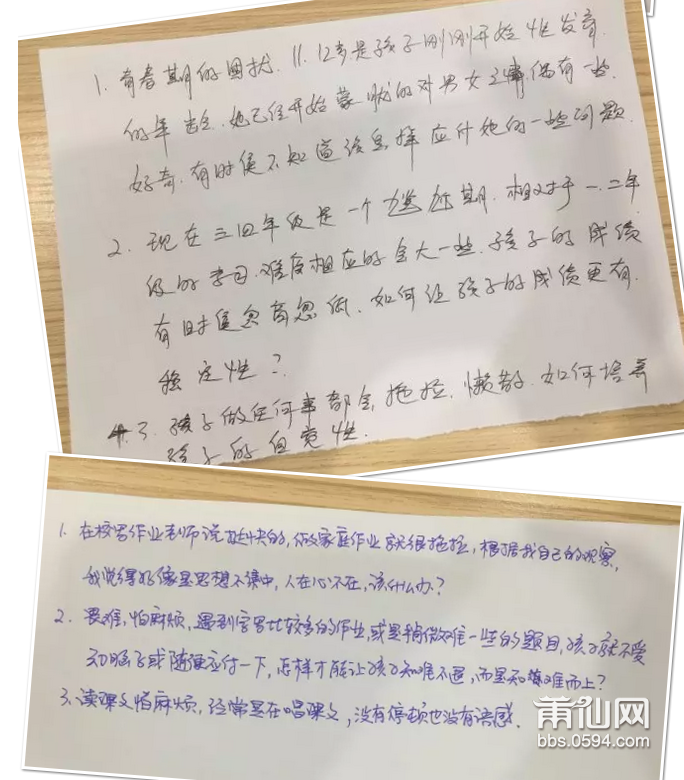 1. 青春期的困扰. 11. 12岁是孩子刚刚开始性发育
的年龄. 她已经开始蒙眬的对男女之情偶有一些
好奇. 有时候不知道该怎样应付她的一些问题
2. 现在三四年级是一个 期. 相对于一.二年
级的学习. 难度相应的会大一些. 孩子的成绩
有时候忽高忽低. 如何让孩子的成绩更有
稳定性?
3. 孩子做任何事都会拖拉. 懒散. 如何培养
孩子的自觉性.
1. 在校写作业老师说挺快的, 做家庭作业就很拖拉, 根据我自己的观察,
我觉得好像是思想不集中, 人在心不在, 该什么办?
2. 畏难, 怕麻烦, 遇到字写比较多的作业, 或是稍微难一些的题目, 孩子就不爱
动脑子或随便应付一下, 怎样才能让孩子知难不退, 而是知难而上?
3. 读课文怕麻烦, 经常是在唱课文, 没有停顿也没有语感.
莆仙网
bbs.0594.com